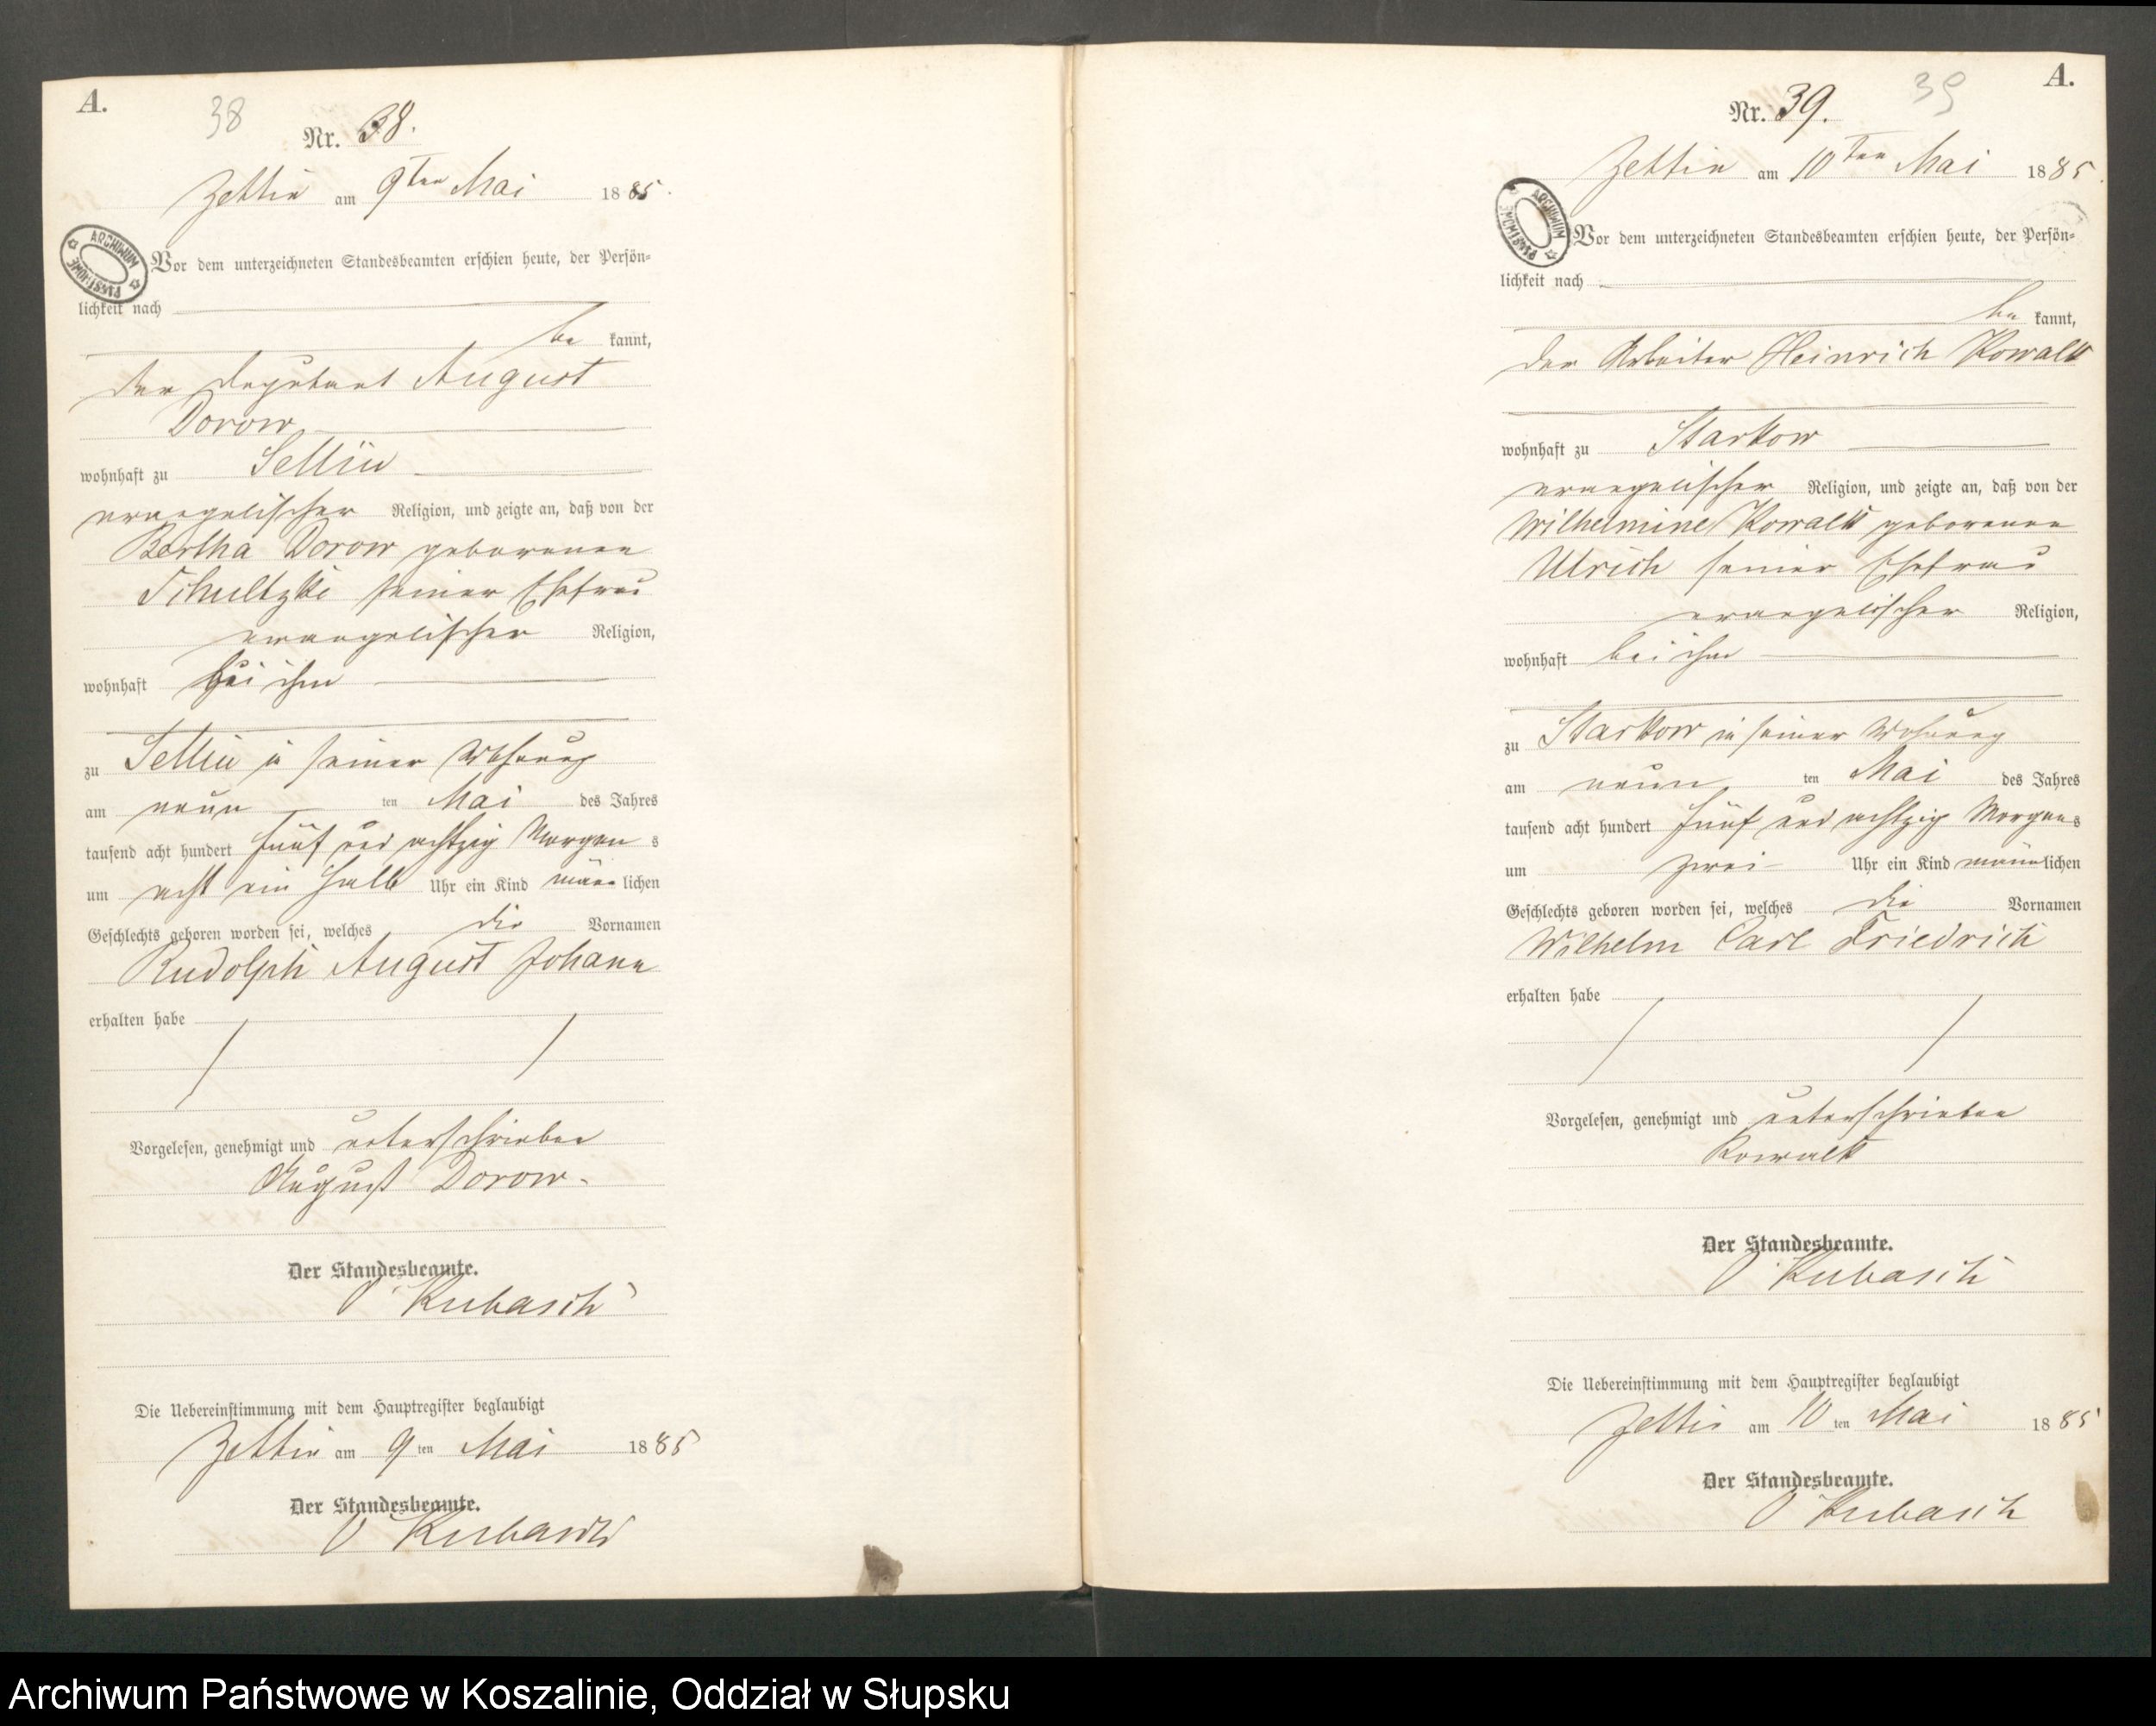 A.
38
Nr. 38.
Zettin am 9ten Mai 1885.
ARCHIWUM PAŃSTWOWE
Vor dem unterzeichneten Standesbeamten erschien heute, der Persön-
lichkeit nach
be kannt,
der Deputant August
Dorow
wohnhaft zu Sellin
evangelischer Religion, und zeigte an, daß von der
Bertha Dorow geborenen
Schultzki seiner Ehefrau
evangelischer Religion,
wohnhaft bei ihm
zu Sellin in seiner Wohnung
am neun ten Mai des Jahres
tausend acht hundert fünf und achtzig Morgens
um acht ein halb Uhr ein Kind männlichen
Geschlechts geboren worden sei, welches die Vornamen
Rudolph August Johann
erhalten habe
Vorgelesen, genehmigt und unterschrieben
August Dorow.
Der Standesbeamte.
Kubasch
Die Uebereinstimmung mit dem Hauptregister beglaubigt
Zettin am 9ten Mai 1885
Der Standesbeamte.
Kubasch
A.
39
Nr. 39.
Zettin am 10ten Mai 1885.
ARCHIWUM PAŃSTWOWE
Vor dem unterzeichneten Standesbeamten erschien heute, der Persön-
lichkeit nach
be kannt,
der Arbeiter Heinrich Kowalk
wohnhaft zu Starkow
evangelischer Religion, und zeigte an, daß von der
Wilhelmine Kowalk geborenen
Ulrich seiner Ehefrau
evangelischer Religion,
wohnhaft bei ihm
zu Starkow in seiner Wohnung
am neun ten Mai des Jahres
tausend acht hundert fünf und achtzig Morgens
um zwei Uhr ein Kind männlichen
Geschlechts geboren worden sei, welches die Vornamen
Wilhelm Carl Friedrich
erhalten habe
Vorgelesen, genehmigt und unterschrieben
Kowalk
Der Standesbeamte.
Kubasch
Die Uebereinstimmung mit dem Hauptregister beglaubigt
Zettin am 10ten Mai 1885
Der Standesbeamte.
Kubasch
Archiwum Państwowe w Koszalinie, Oddział w Słupsku